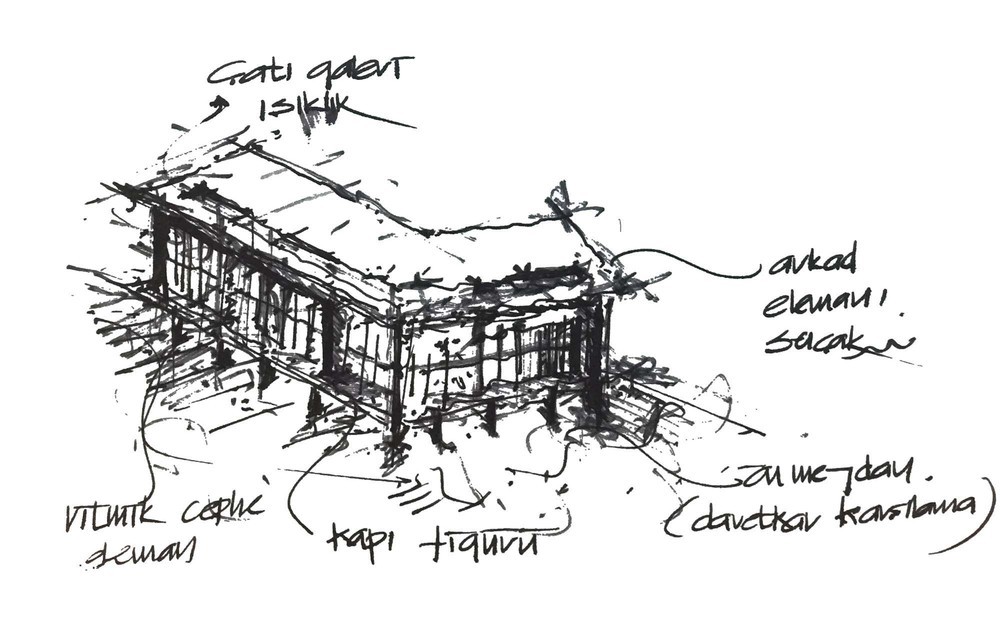 Çatı galeri
ışıklık
arkad
elemanı
saçak
ritmik cephe
eleman
kapı figürü
ön meydan.
(davetkar karşılama)